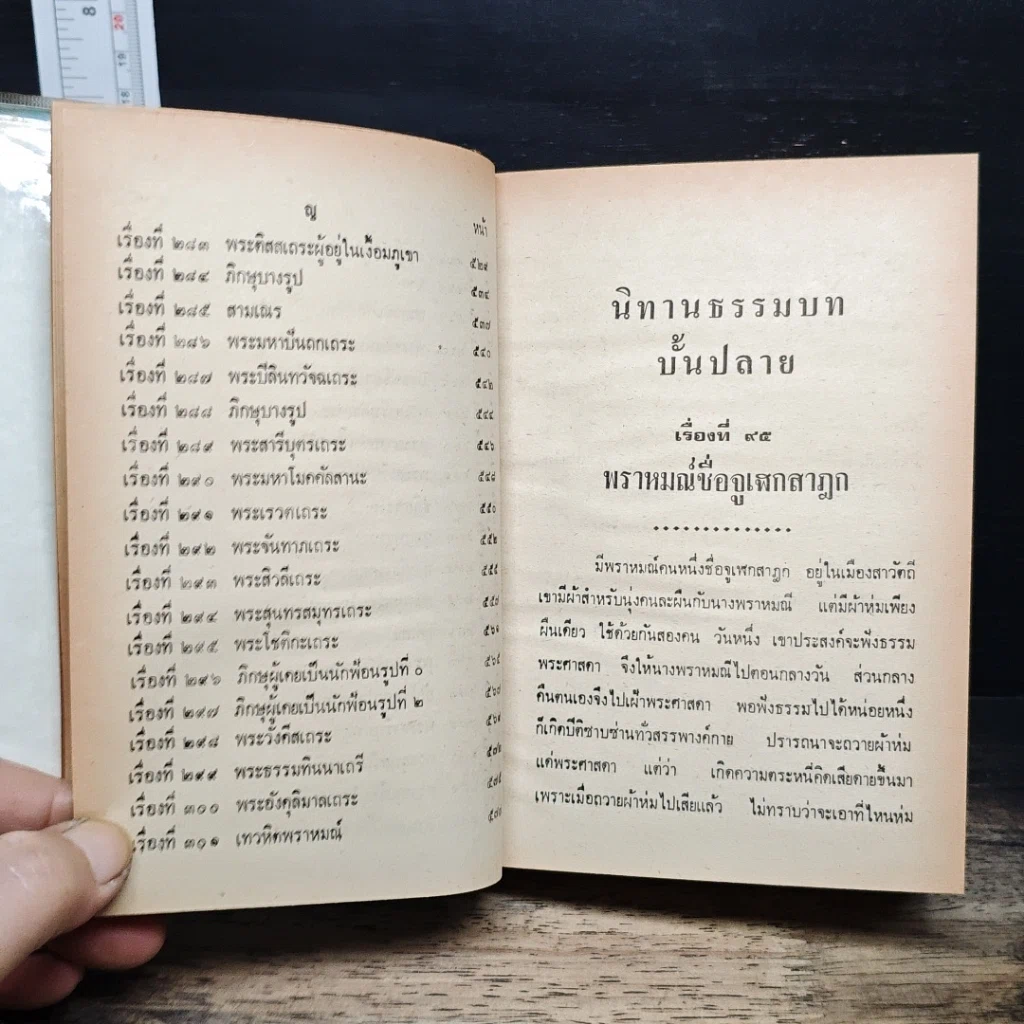 8
20
19
18
ญ
หน้า
เรื่องที่ ๒๘๓ พระติสสเถระผู้อยู่ในเงื้อมภูเขา ๕๒๙
เรื่องที่ ๒๘๔ ภิกษุบางรูป ๕๓๔
เรื่องที่ ๒๘๕ สามเณร ๕๓๗
เรื่องที่ ๒๘๖ พระมหาปันถกเถระ ๕๔๐
เรื่องที่ ๒๘๗ พระปิลินทวัจฉเถระ ๕๔๒
เรื่องที่ ๒๘๘ ภิกษุบางรูป ๕๔๔
เรื่องที่ ๒๘๙ พระสารีบุตรเถระ ๕๔๖
เรื่องที่ ๒๙๐ พระมหาโมคคัลลานะ ๕๔๘
เรื่องที่ ๒๙๑ พระเรวตเถระ ๕๕๐
เรื่องที่ ๒๙๒ พระจันทาภเถระ ๕๕๒
เรื่องที่ ๒๙๓ พระสิวลีเถระ ๕๕๕
เรื่องที่ ๒๙๔ พระสุนทรสมุทรเถระ ๕๕๗
เรื่องที่ ๒๙๕ พระโชติกะเถระ ๕๖๑
เรื่องที่ ๒๙๖ ภิกษุผู้เคยเป็นนักฟ้อนรูปที่ ๑ ๕๖๕
เรื่องที่ ๒๙๗ ภิกษุผู้เคยเป็นนักฟ้อนรูปที่ ๒ ๕๖๗
เรื่องที่ ๒๙๘ พระวังคีสเถระ ๕๖๙
เรื่องที่ ๒๙๙ พระธรรมทินนาเถรี ๕๗๒
เรื่องที่ ๓๐๐ พระอังคุลิมาลเถระ ๕๗๕
เรื่องที่ ๓๐๑ เทวหิตพราหมณ์
นิทานธรรมบท
บั้นปลาย
เรื่องที่ ๙๕
พราหมณ์ชื่อจูเฬกสาฎก
..............
มีพราหมณ์คนหนึ่งชื่อจูเฬกสาฎก อยู่ในเมืองสาวัตถี
เขามีผ้าสำหรับนุ่งคนละผืนกับนางพราหมณี แต่มีผ้าห่มเพียง
ผืนเดียว ใช้ด้วยกันสองคน วันหนึ่ง เขาประสงค์จะฟังธรรม
พระศาสดา จึงให้นางพราหมณีไปตอนกลางวัน ส่วนกลาง
คืนตนเองจึงไปเฝ้าพระศาสดา พอฟังธรรมไปได้หน่อยหนึ่ง
ก็เกิดปีติซาบซ่านทั่วสรรพางค์กาย ปรารถนาจะถวายผ้าห่ม
แด่พระศาสดา แต่ว่า เกิดความตระหนี่คิดเสียดายขึ้นมา
เพราะเมื่อถวายผ้าห่มไปเสียแล้ว ไม่ทราบว่าจะเอาที่ไหนห่ม